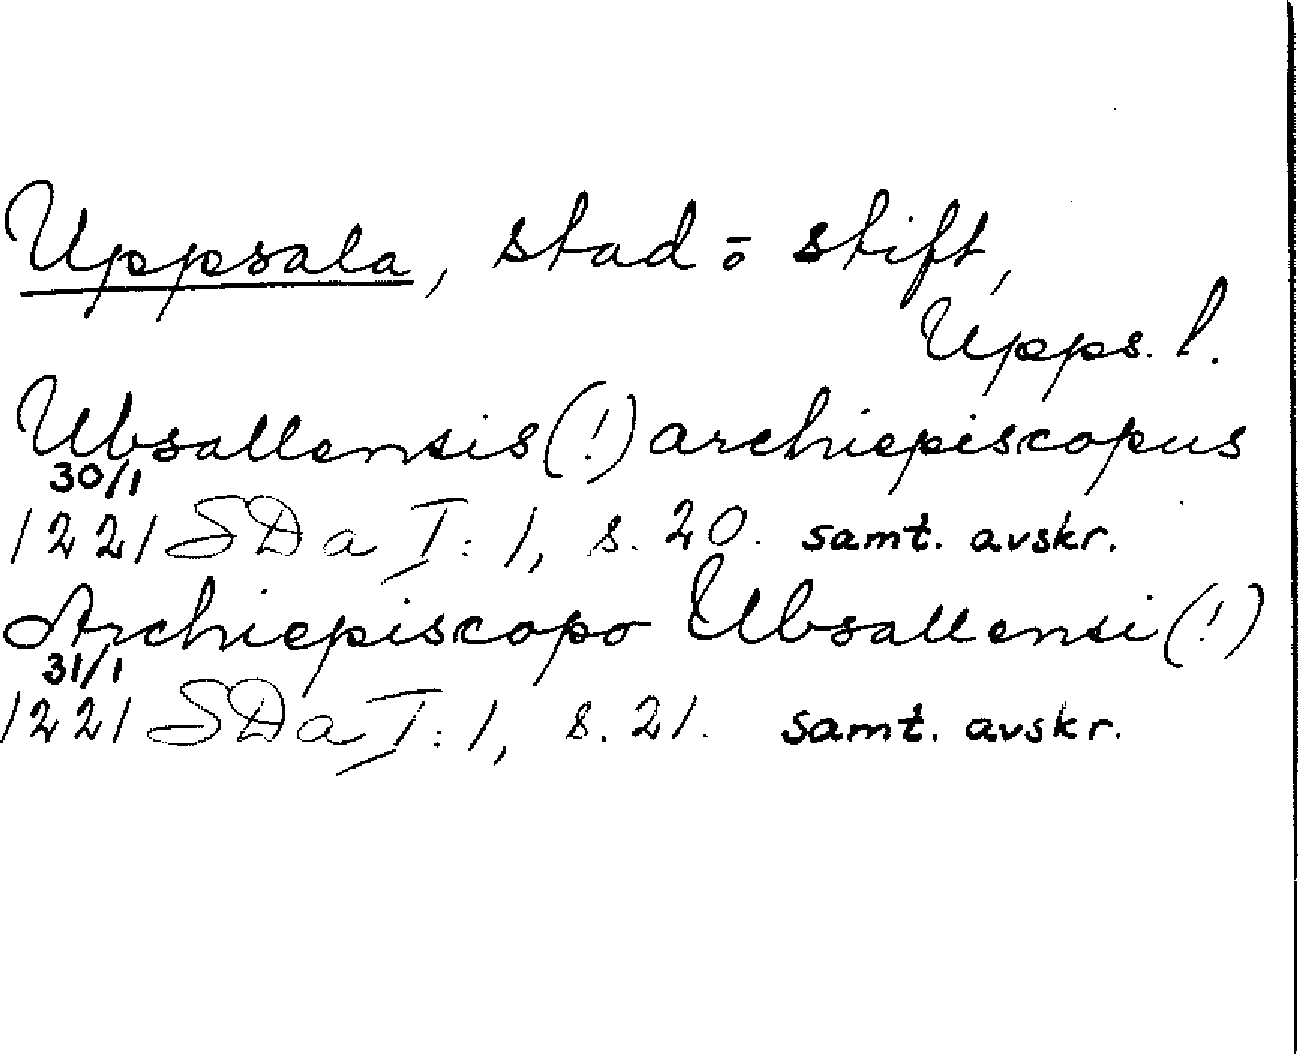 Uppsala, stad o stift,
Upps. l.
Ubsallensis (!) archiepiscopus
30/1
1221 SDa I: 1, s. 20. samt. avskr.
Archiepiscopo Ubsallensi (!)
31/1
1221 SDa I: 1, s. 21. samt. avskr.